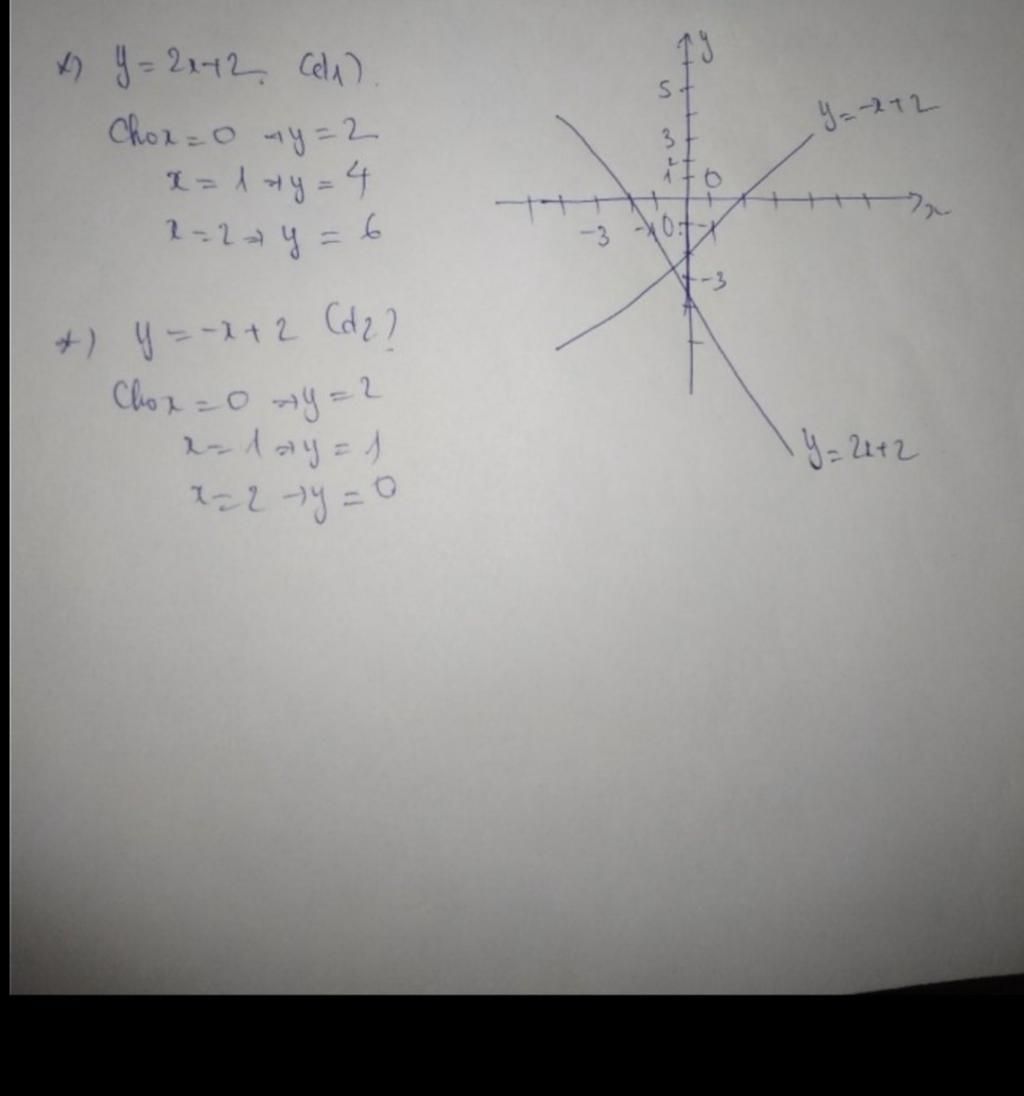 *) y = 2x+2. (d1).
Cho x = 0 → y = 2
x = 1 → y = 4
x = 2 → y = 6
*) y = -x + 2 (d2)
Cho x = 0 → y = 2
x = 1 → y = 1
x = 2 → y = 0
y
5
y = -x + 2
3
2
1 0
x
-3 -1 0 -1
-3
y = 2x+2